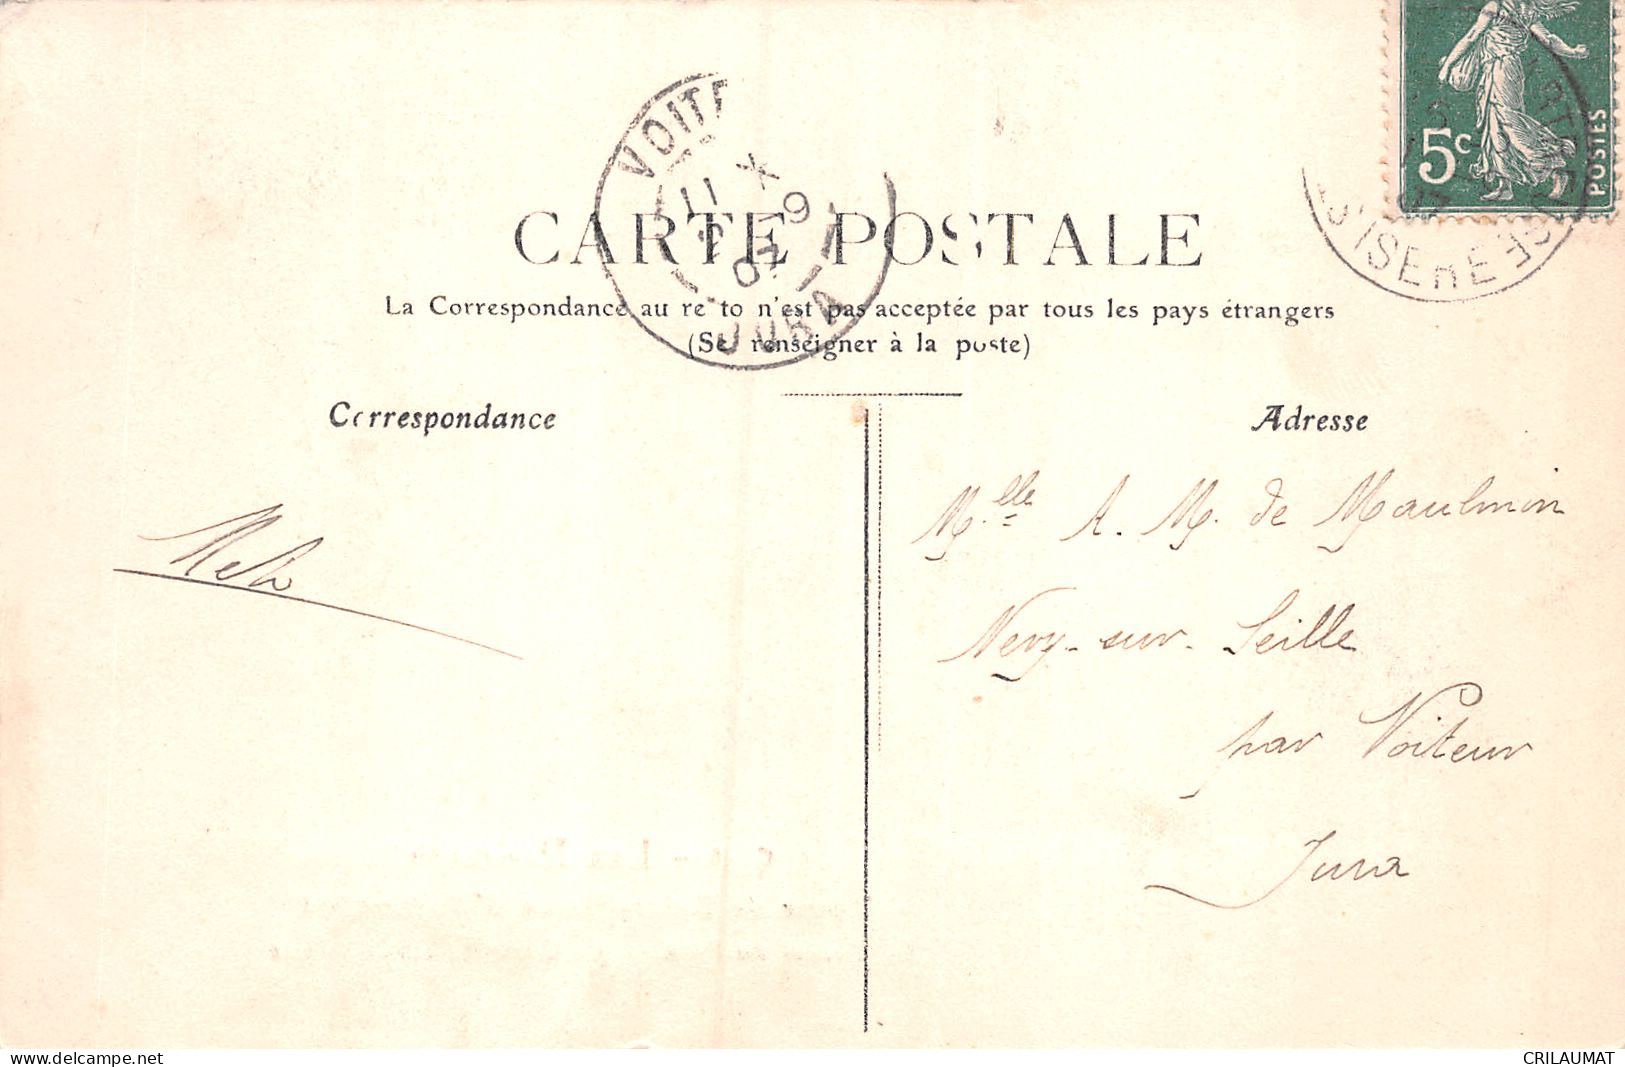 5c
POSTES
VOITE
11 X
9
07
JURA
CARTE POSTALE
La Correspondance au recto n'est pas acceptée par tous les pays étrangers
(Se renseigner à la poste)
Correspondance
Adresse
Melle A. M. de Maulmin
Nevy-sur-Seille
par Voiteur
Jura
delcampe.net
CRILAUMAT